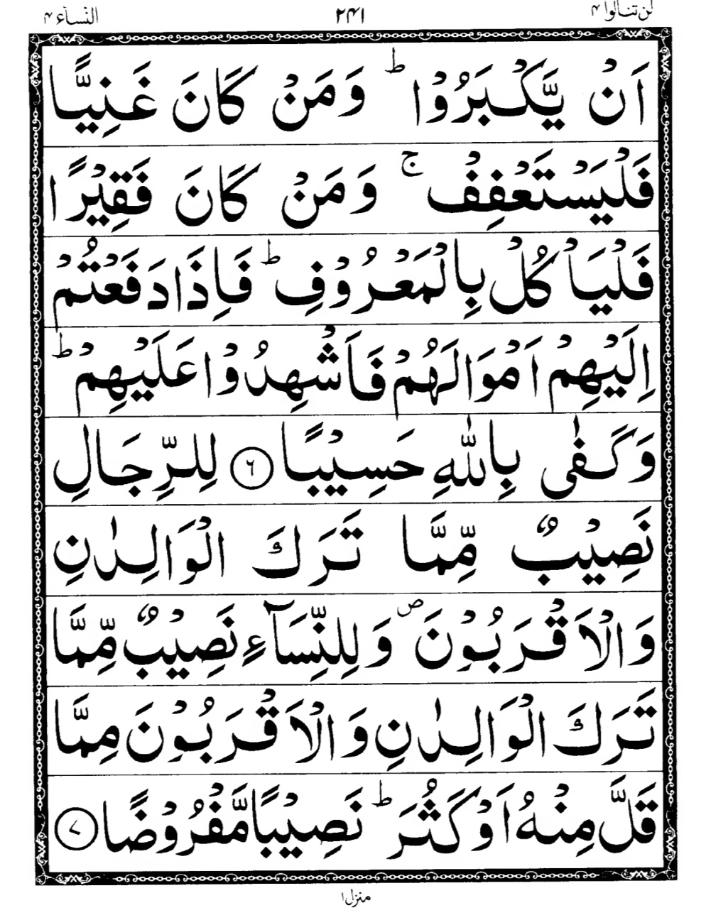 لن تنالوا ۴ ۲۴۱ النسآء ۴
اَنْ يَّكْبَرُوْا ؕ وَمَنْ كَانَ غَنِيًّا
فَلْيَسْتَعْفِفْ ۚ وَمَنْ كَانَ فَقِيْرًا
فَلْيَاْكُلْ بِالْمَعْرُوْفِ ؕ فَاِذَا دَفَعْتُمْ
اِلَيْهِمْ اَمْوَالَهُمْ فَاَشْهِدُوْا عَلَيْهِمْ ؕ
وَكَفٰى بِاللّٰهِ حَسِيْبًا ۶ لِلرِّجَالِ
نَصِيْبٌ مِّمَّا تَرَكَ الْوَالِدٰنِ
وَالْاَقْرَبُوْنَ ۪ وَلِلنِّسَآءِ نَصِيْبٌ مِّمَّا
تَرَكَ الْوَالِدٰنِ وَالْاَقْرَبُوْنَ مِمَّا
قَلَّ مِنْهُ اَوْ كَثُرَ ؕ نَصِيْبًا مَّفْرُوْضًا ۷
منزل ۱